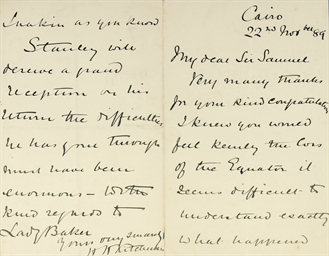 Cairo
22nd Novber 89
My dear Sir Samuel
Very many thanks
for your kind congratulations
I knew you would
feel keenly the loss
of the Equator it
seems difficult to
understand exactly
what happened
as you know
Stanley will
deserve a grand
reception on his
return the difficulties
he has gone through
must have been
enormous — With
kind regards to
Lady Baker
Yours very sincerely
H H Kitchener